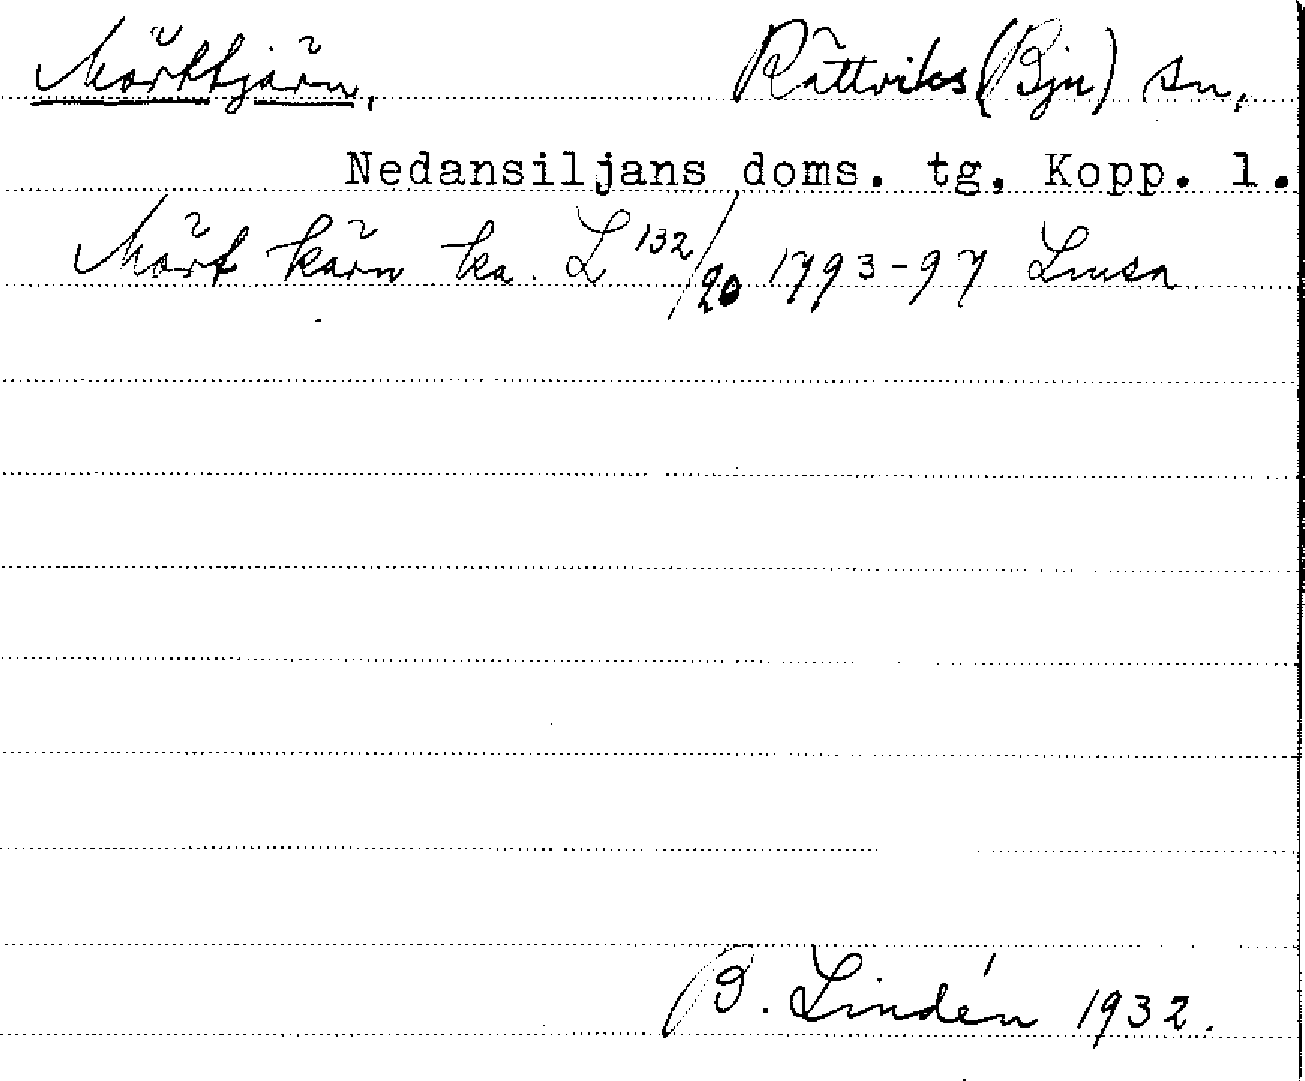 Mörttjärn, Rättviks (Bju) sn,
Nedansiljans doms. tg, Kopp. l.
Mört kärn ka. L 132/20 1793-97 Lmsa
B. Lindén 1932.